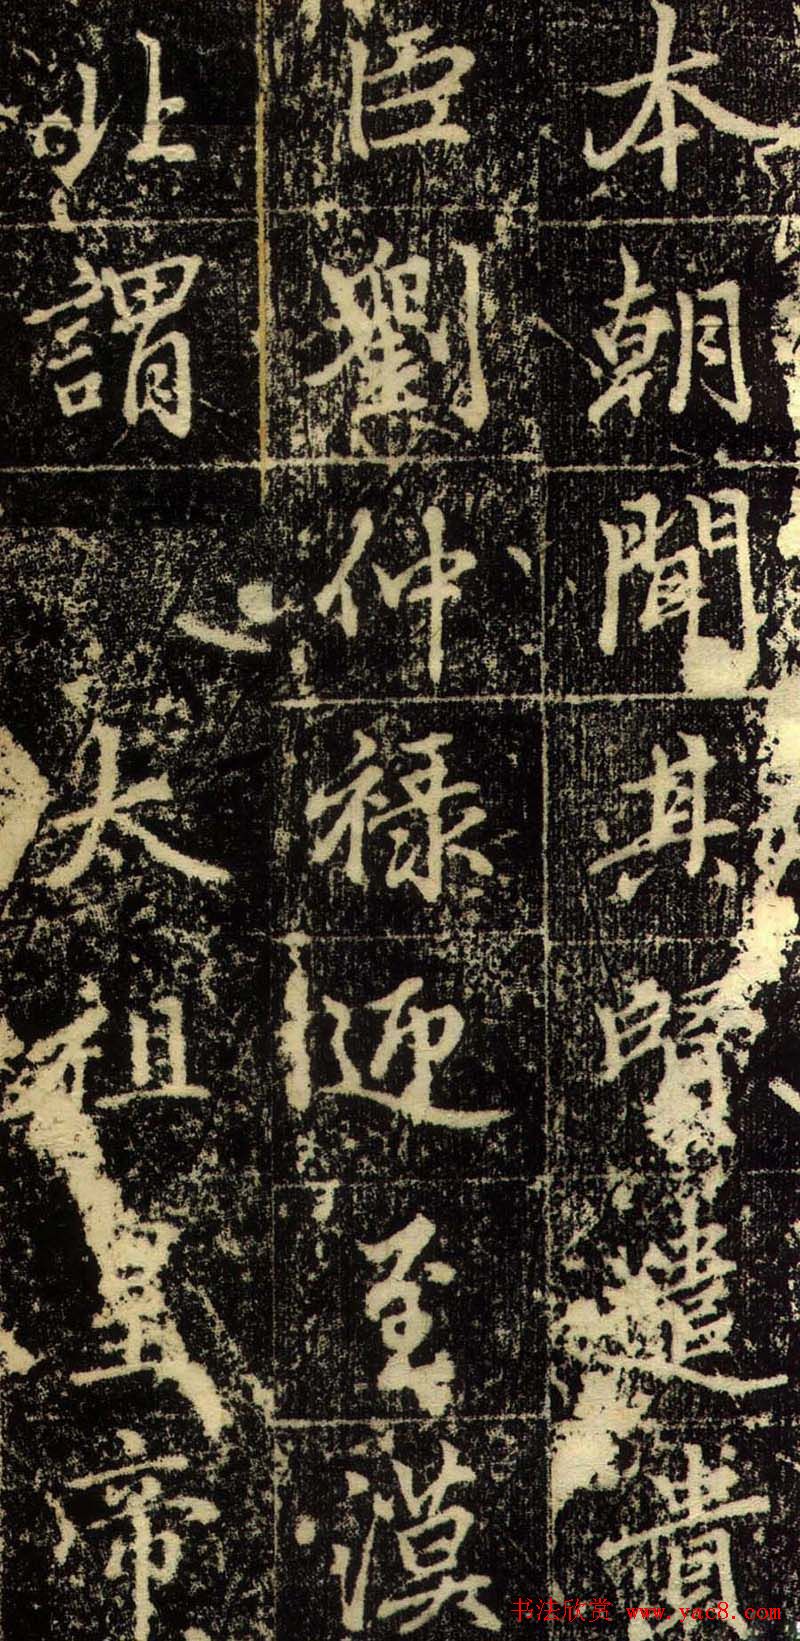 本朝聞其賢遣貴
臣劉仲祿迎至漠
北謂太祖皇帝
书法欣赏 www.yac8.com